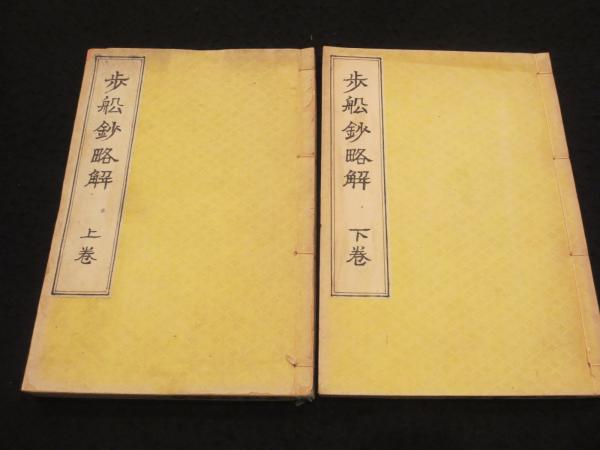 歩舩鈔略解
上巻
歩舩鈔略解
下巻